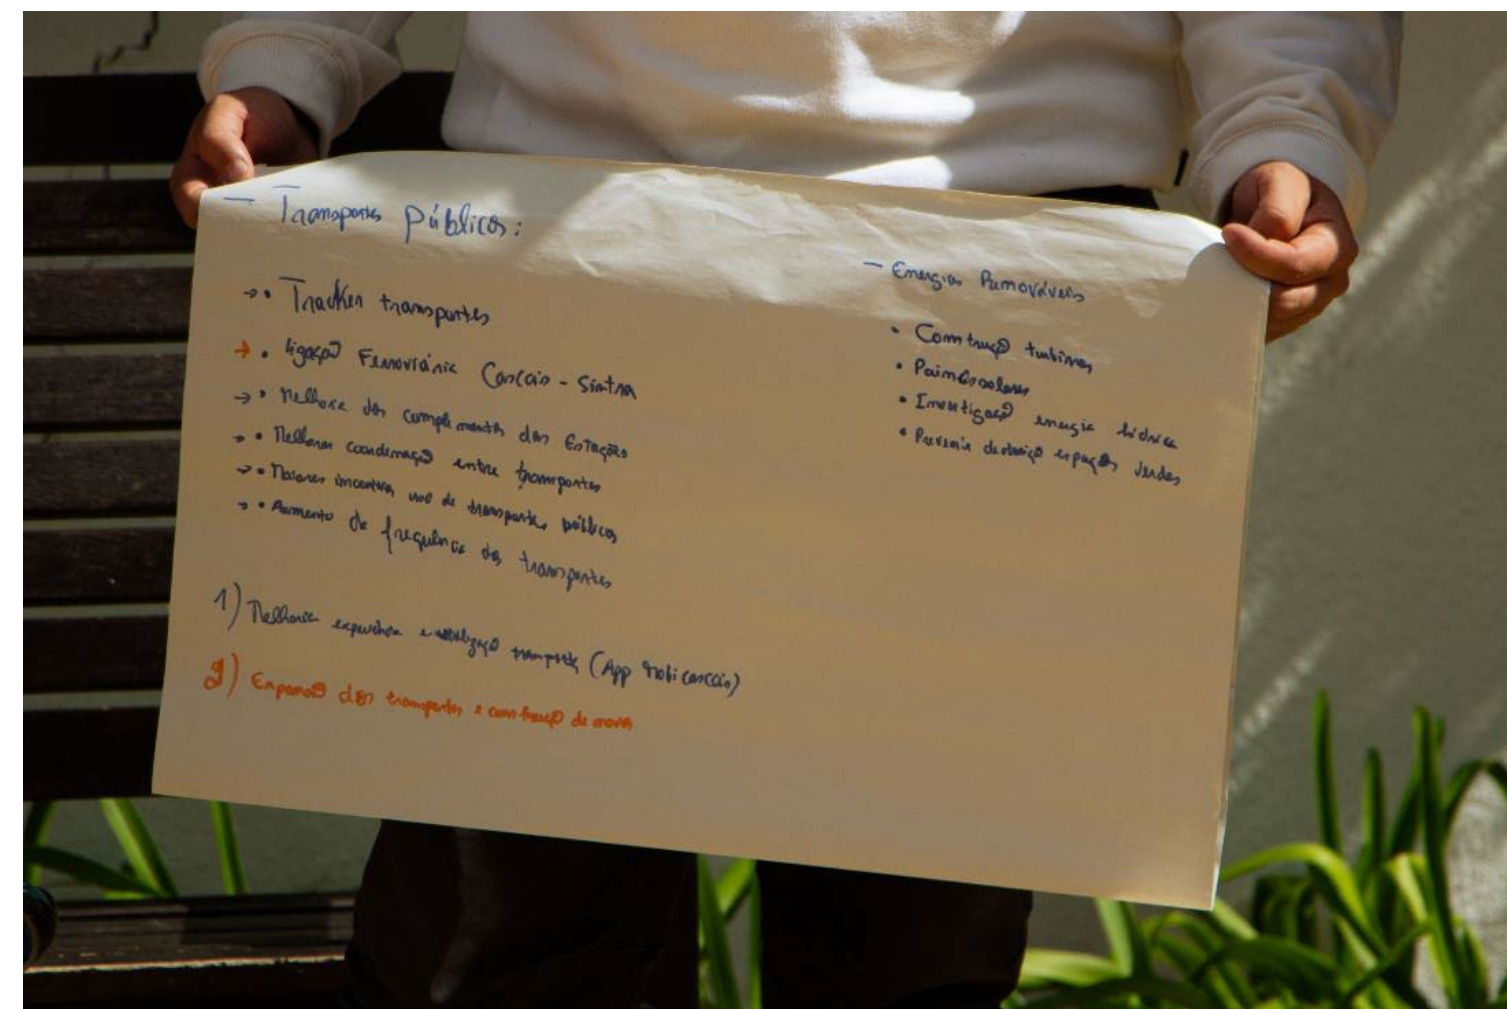 — Transportes Públicos:
→ • Tracker transportes
→ • ligação Ferroviária Cascais - Sintra
→ • Melhoria dos complementos das Estações
→ • Melhorar coordenação entre transportes
→ • Maiores incentivos uso de transportes públicos
→ • Aumento de frequência dos transportes
1) Melhoria experiência e utilização transportes (App Mobi cascais)
2) Expansão dos transportes e construção de novos
— Energias Renováveis
• Construção turbinas
• Painéis solares
• Investigação energia hídrica
• Prevenir destruição espaços verdes